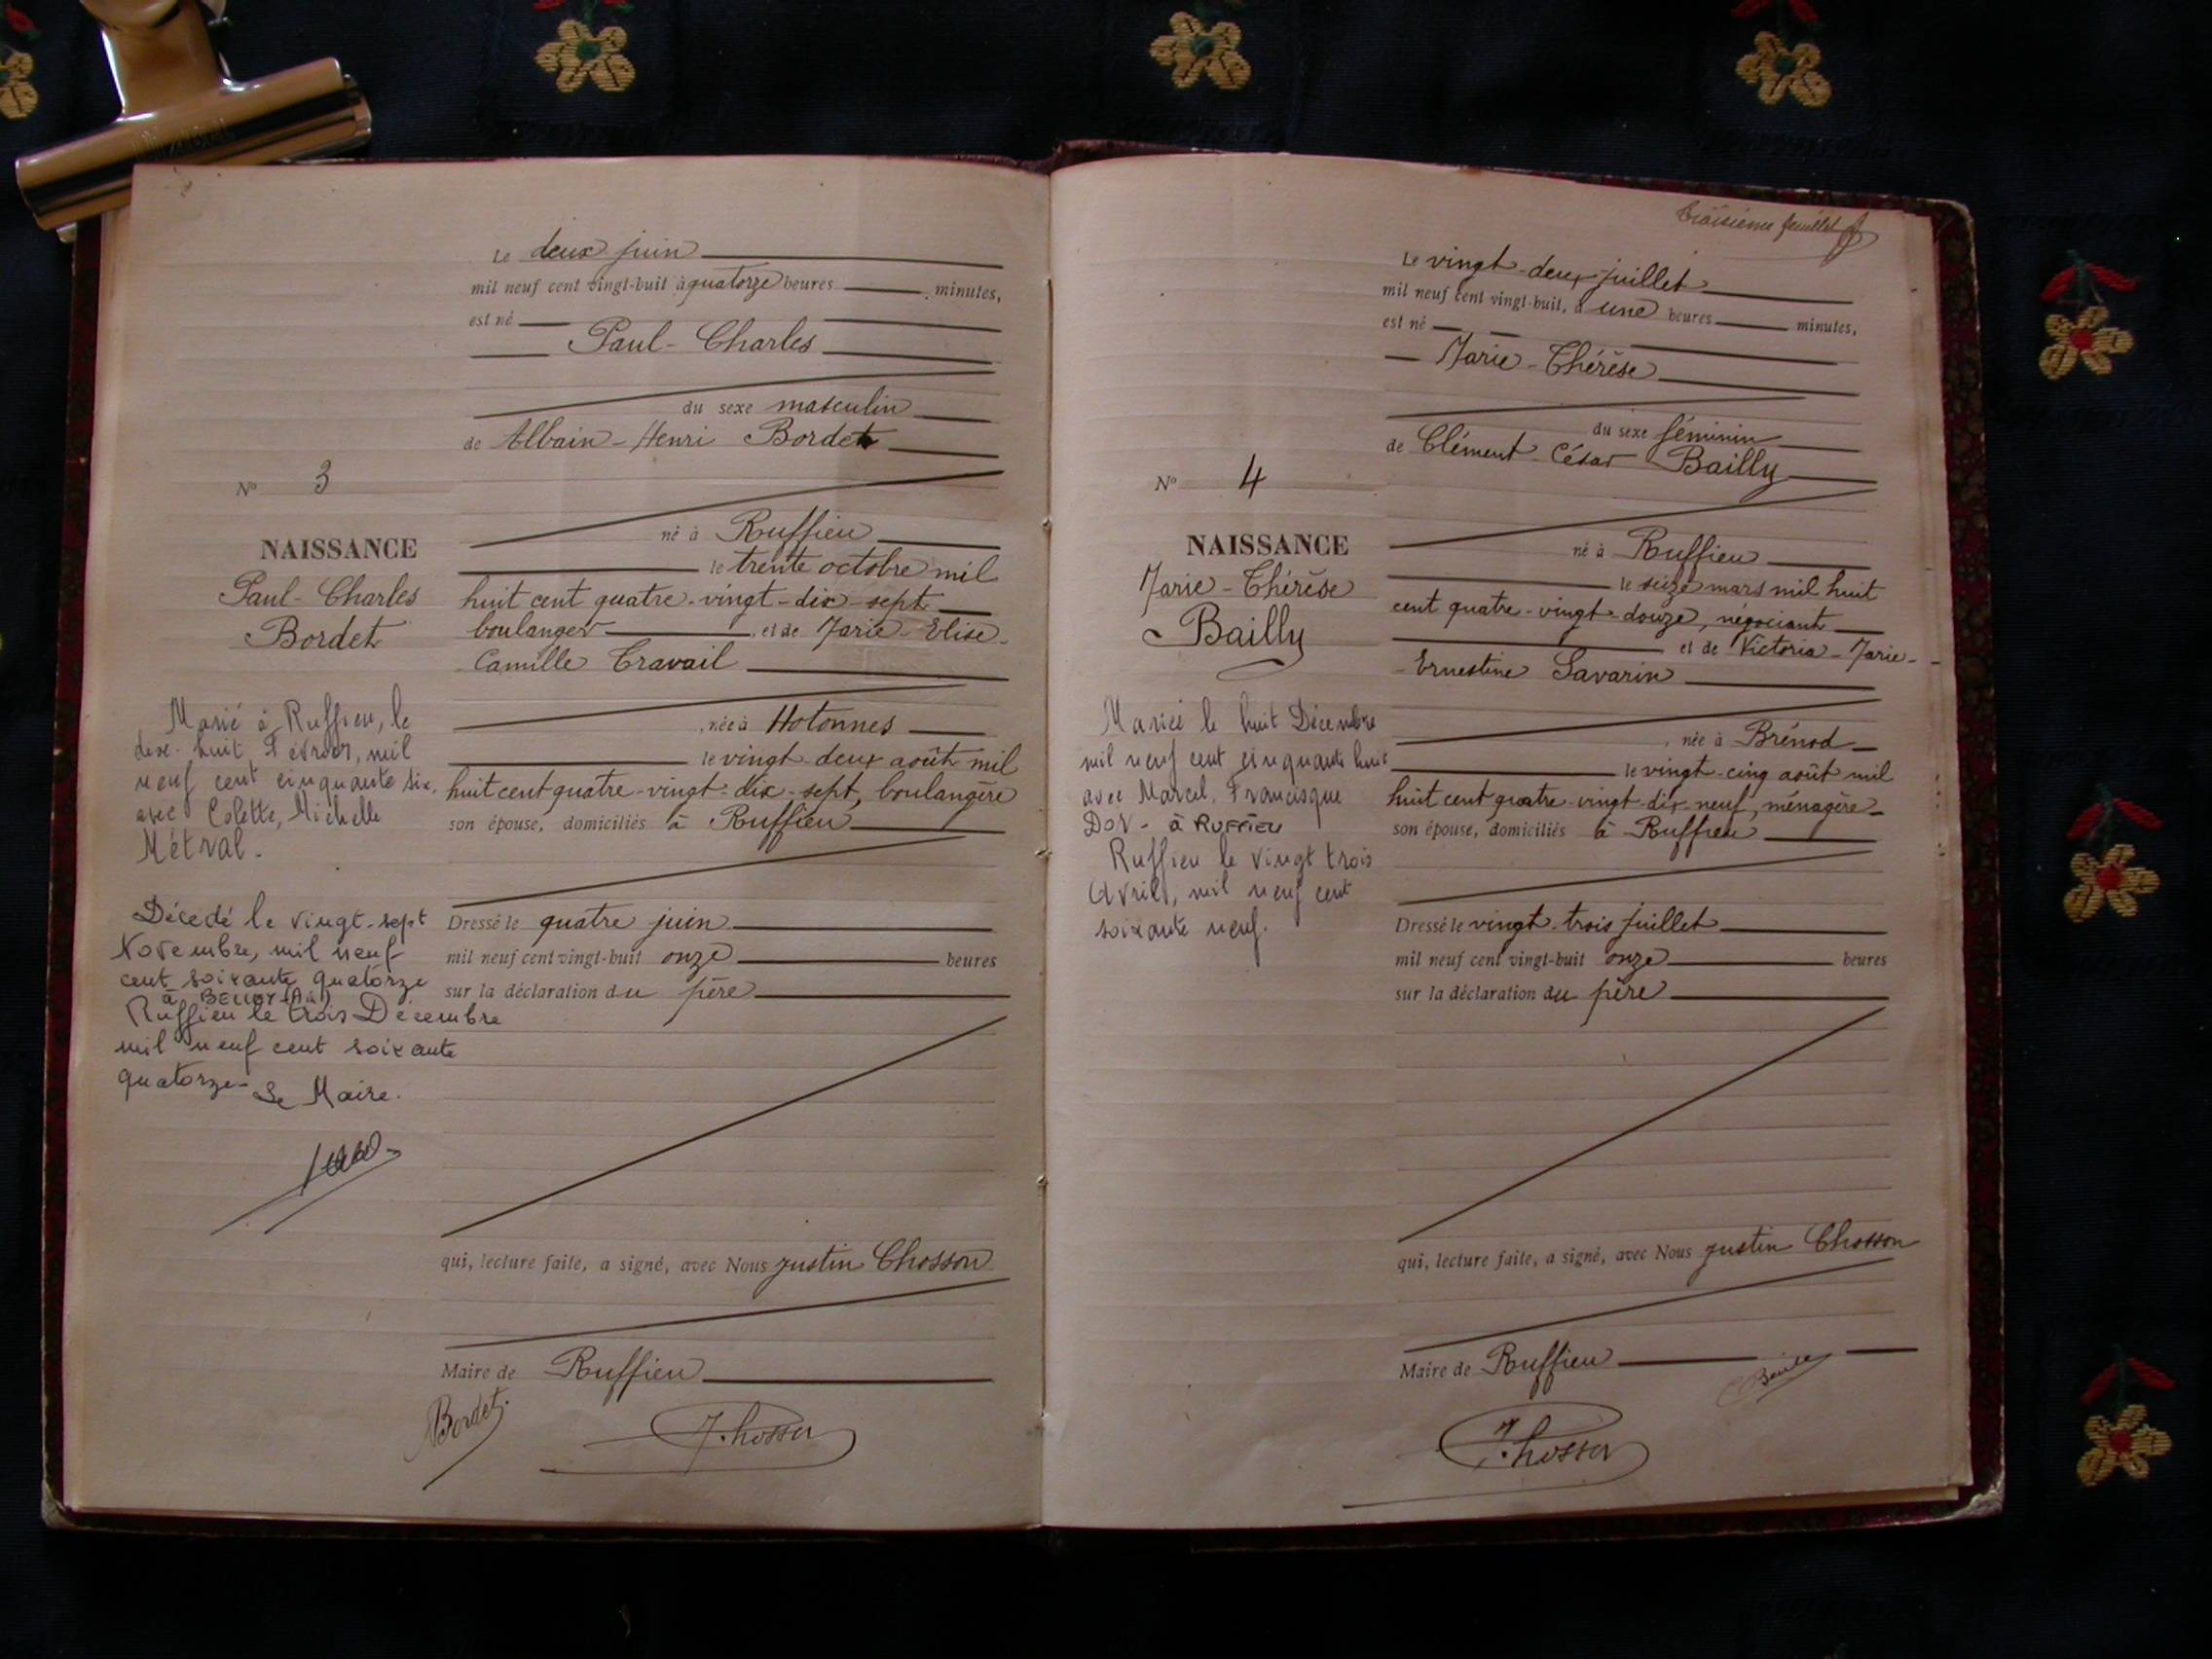 Le deux juin
mil neuf cent vingt-huit à quatorze heures minutes,
est né
Paul-Charles
du sexe masculin
de Albain-Henri Bordet
N° 3
né à Ruffieu
NAISSANCE
le trente octobre mil
Paul-Charles
huit cent quatre-vingt-dix-sept
Bordet
boulanger, et de Marie-Elise-
Camille Travail
Marié à Ruffieu, le
dix-huit Février, mil
neuf cent cinquante six,
avec Colette, Michelle
Métral.
née à Hotonnes
le vingt-deux août mil
huit cent quatre-vingt-dix-sept, boulangère
son épouse, domiciliés à Ruffieu
Décédé le vingt-sept
Novembre, mil neuf
cent soixante quatorze
à BELLEY (Ain)
Ruffieu le trois Décembre
mil neuf cent soixante
quatorze-
Le Maire.
Dressé le quatre juin
mil neuf cent vingt-huit onze heures
sur la déclaration du père
qui, lecture faite, a signé, avec Nous Justin Chosson
Maire de Ruffieu
Bordet
J. Chosson
troisième feuillet
Le vingt-deux juillet
mil neuf cent vingt-huit, à une heures minutes,
est né
Marie-Thérèse
du sexe féminin
de Clément César Bailly
N° 4
né à Ruffieu
NAISSANCE
le seize mars mil huit
Marie-Thérèse
cent quatre-vingt-douze, négociant
Bailly
et de Victoria-Marie-
Ernestine Savarin
Mariée le huit Décembre
mil neuf cent cinquante huit
avec Marcel, Francisque
DOR - à RUFFIEU
Ruffieu le vingt trois
Avril, mil neuf cent
soixante neuf.
née à Brénod
le vingt-cinq août mil
huit cent quatre-vingt-dix-neuf, ménagère
son épouse, domiciliés à Ruffieu
Dressé le vingt-trois juillet
mil neuf cent vingt-huit onze heures
sur la déclaration du père
qui, lecture faite, a signé, avec Nous Justin Chosson
Maire de Ruffieu
J. Chosson